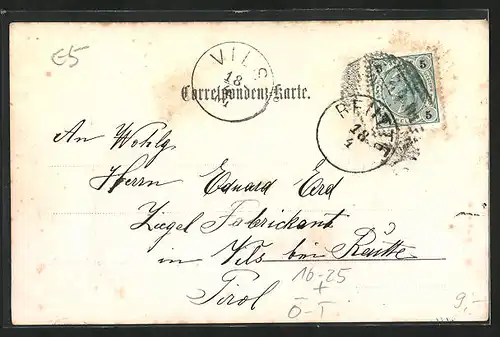 E5
VILS
18
4
5
5
Correspondenz-Karte.
REUTTE
18
4
An Wohlg.
Herrn Eduard Erd
Ziegel Fabrickant
in Vils bei Reutte
Tirol
16-25
+
Ö-T
9,-